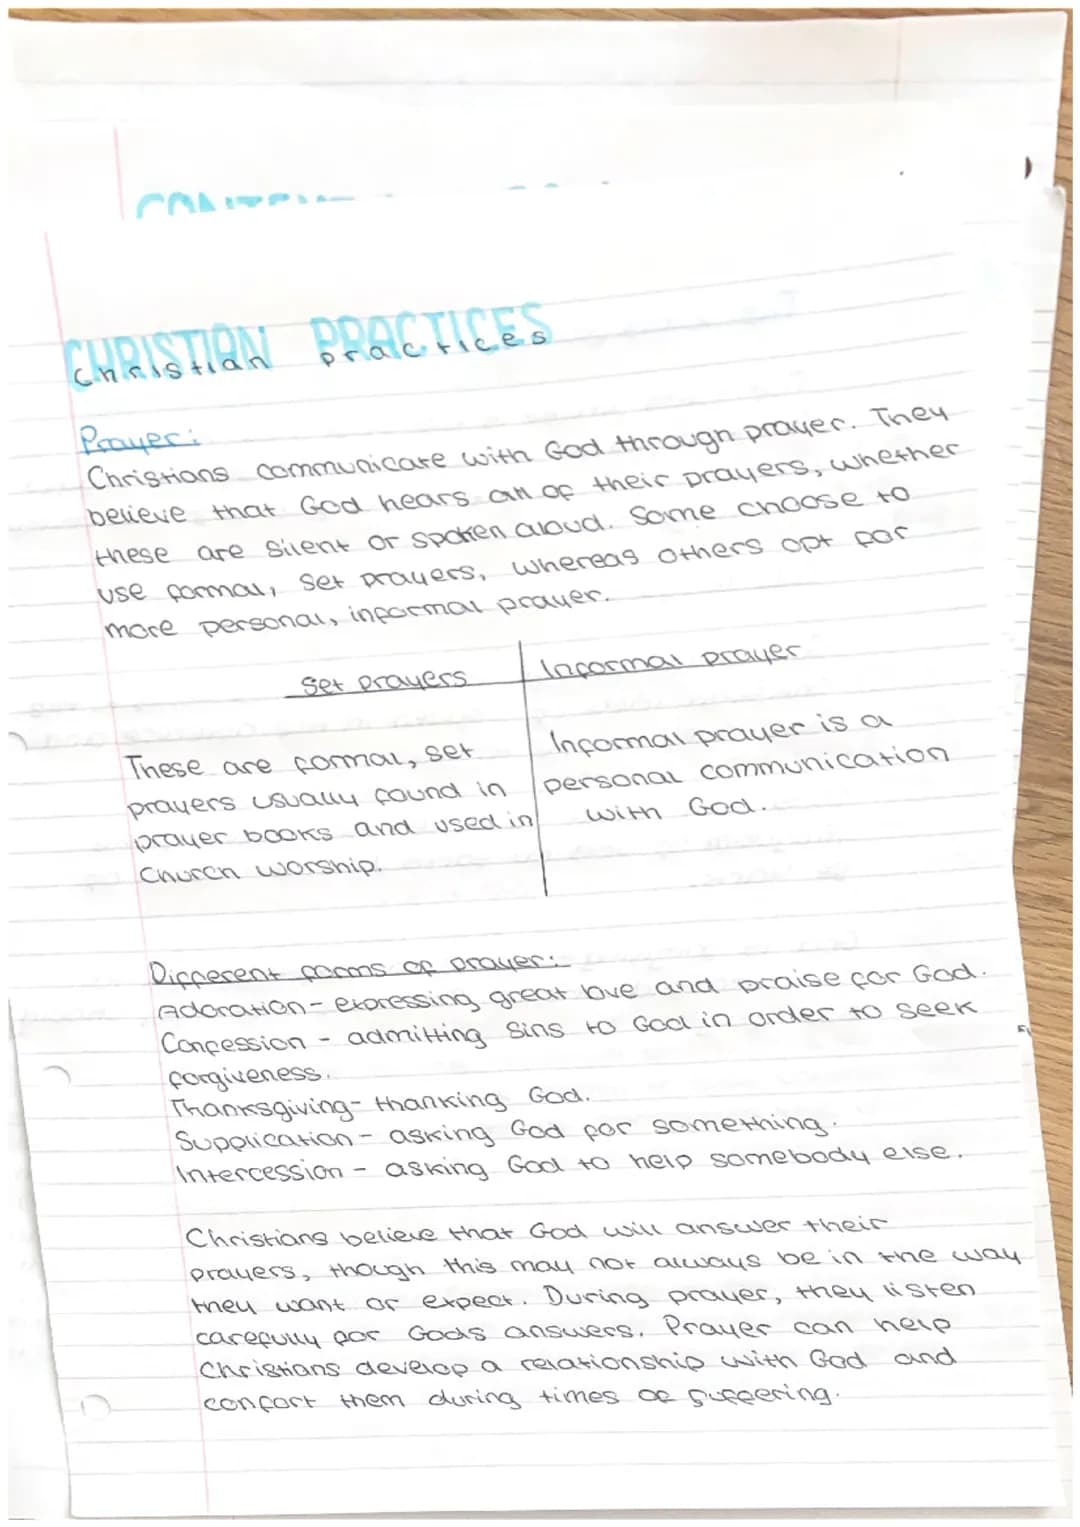 CHRISTIAN PRACTICES
Christian practices
Prayer:
Christians communicate with God through prayer. They
believe that God hears all of their prayers, whether
these are silent or spoken aloud. Some choose to
use formal, set prayers, whereas others opt for
more personal, informal prayer.
Set prayers | Informal prayer
These are formal, set
prayers usually found in
prayer books and used in
Church worship.
Informal prayer is a
personal communication
with God.
Different forms of prayer:
Adoration - expressing great love and praise for God.
Confession - admitting sins to God in order to seek
forgiveness.
Thanksgiving - thanking God.
Supplication - asking God for something.
Intercession - asking God to help somebody else.
Christians believe that God will answer their
prayers, though this may not always be in the way
they want or expect. During prayer, they listen
carefully for Gods answers. Prayer can help
Christians develop a relationship with God and
confort them during times of suffering.